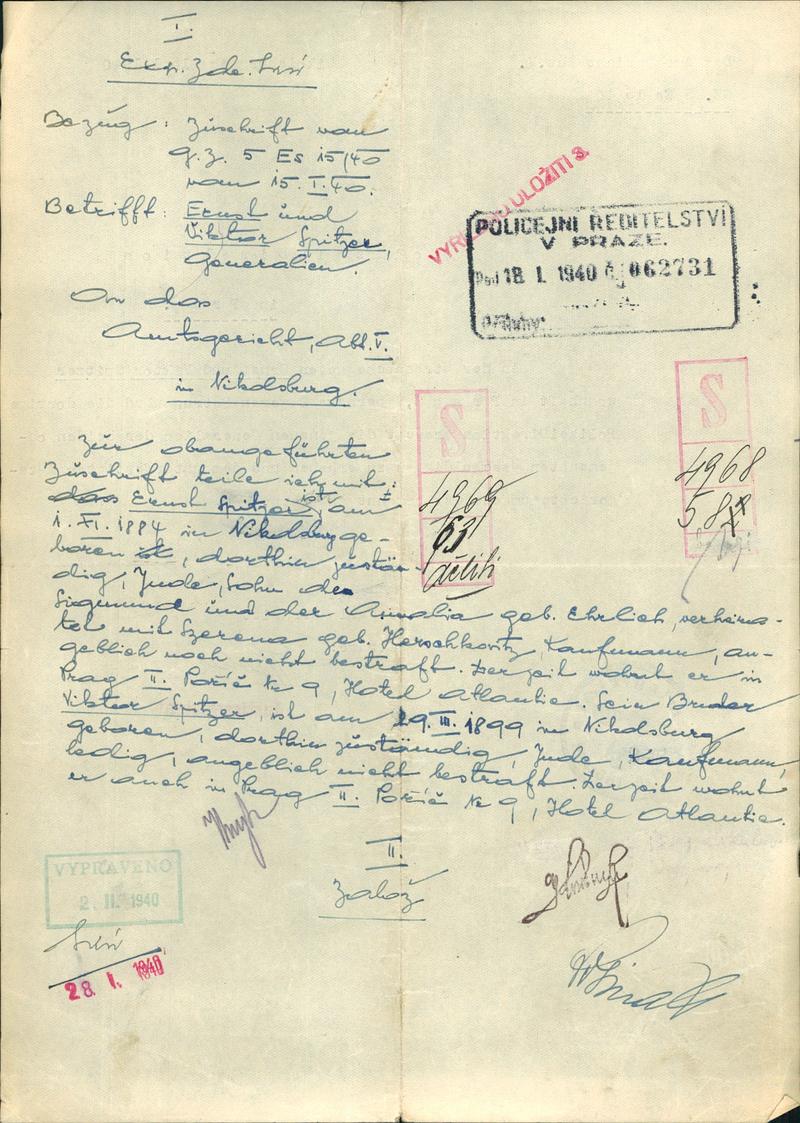 I.
Exp. Zde.
Bezug: Zuschrift vom
g.z. 5 Es 15/40
vom 15.I.40.
Betrifft: Ernst und
Viktor Spitzer,
Generalien.
VYŘ ULOŽITI S.
POLICEJNÍ ŘEDITELSTVÍ
V PRAZE.
18 I. 1940 č.j. 062731
An das
Amtsgericht, Abt. V.
in Nikolsburg.
S
S
Zur obangeführten
Zuschrift teile ich mit:
dass Ernst Spitzer ist am
1. XI. 1884 in Nikolsburg ge-
boren ist, dorthin zustän-
dig, Jude, Sohn des
Sigmund und der Amalia geb. Ehrlich, verheira-
tet mit Szerena geb. Herschkovitz, Kaufmann, an-
geblich noch nicht bestraft. Derzeit wohnt er in
Prag II. Poříč Nr 9, Hotel Atlantic. Sein Bruder
Viktor Spitzer, ist am 29. III. 1899 in Nikolsburg
geboren, dorthin zuständig, Jude, Kaufmann,
ledig, angeblich nicht bestraft. Derzeit wohnt
er auch in Prag II. Poříč Nr 9, Hotel Atlantic.
4969
63
4968
58
II.
Založ
VYPRAVENO
2. II. 1940
28. I. 1940